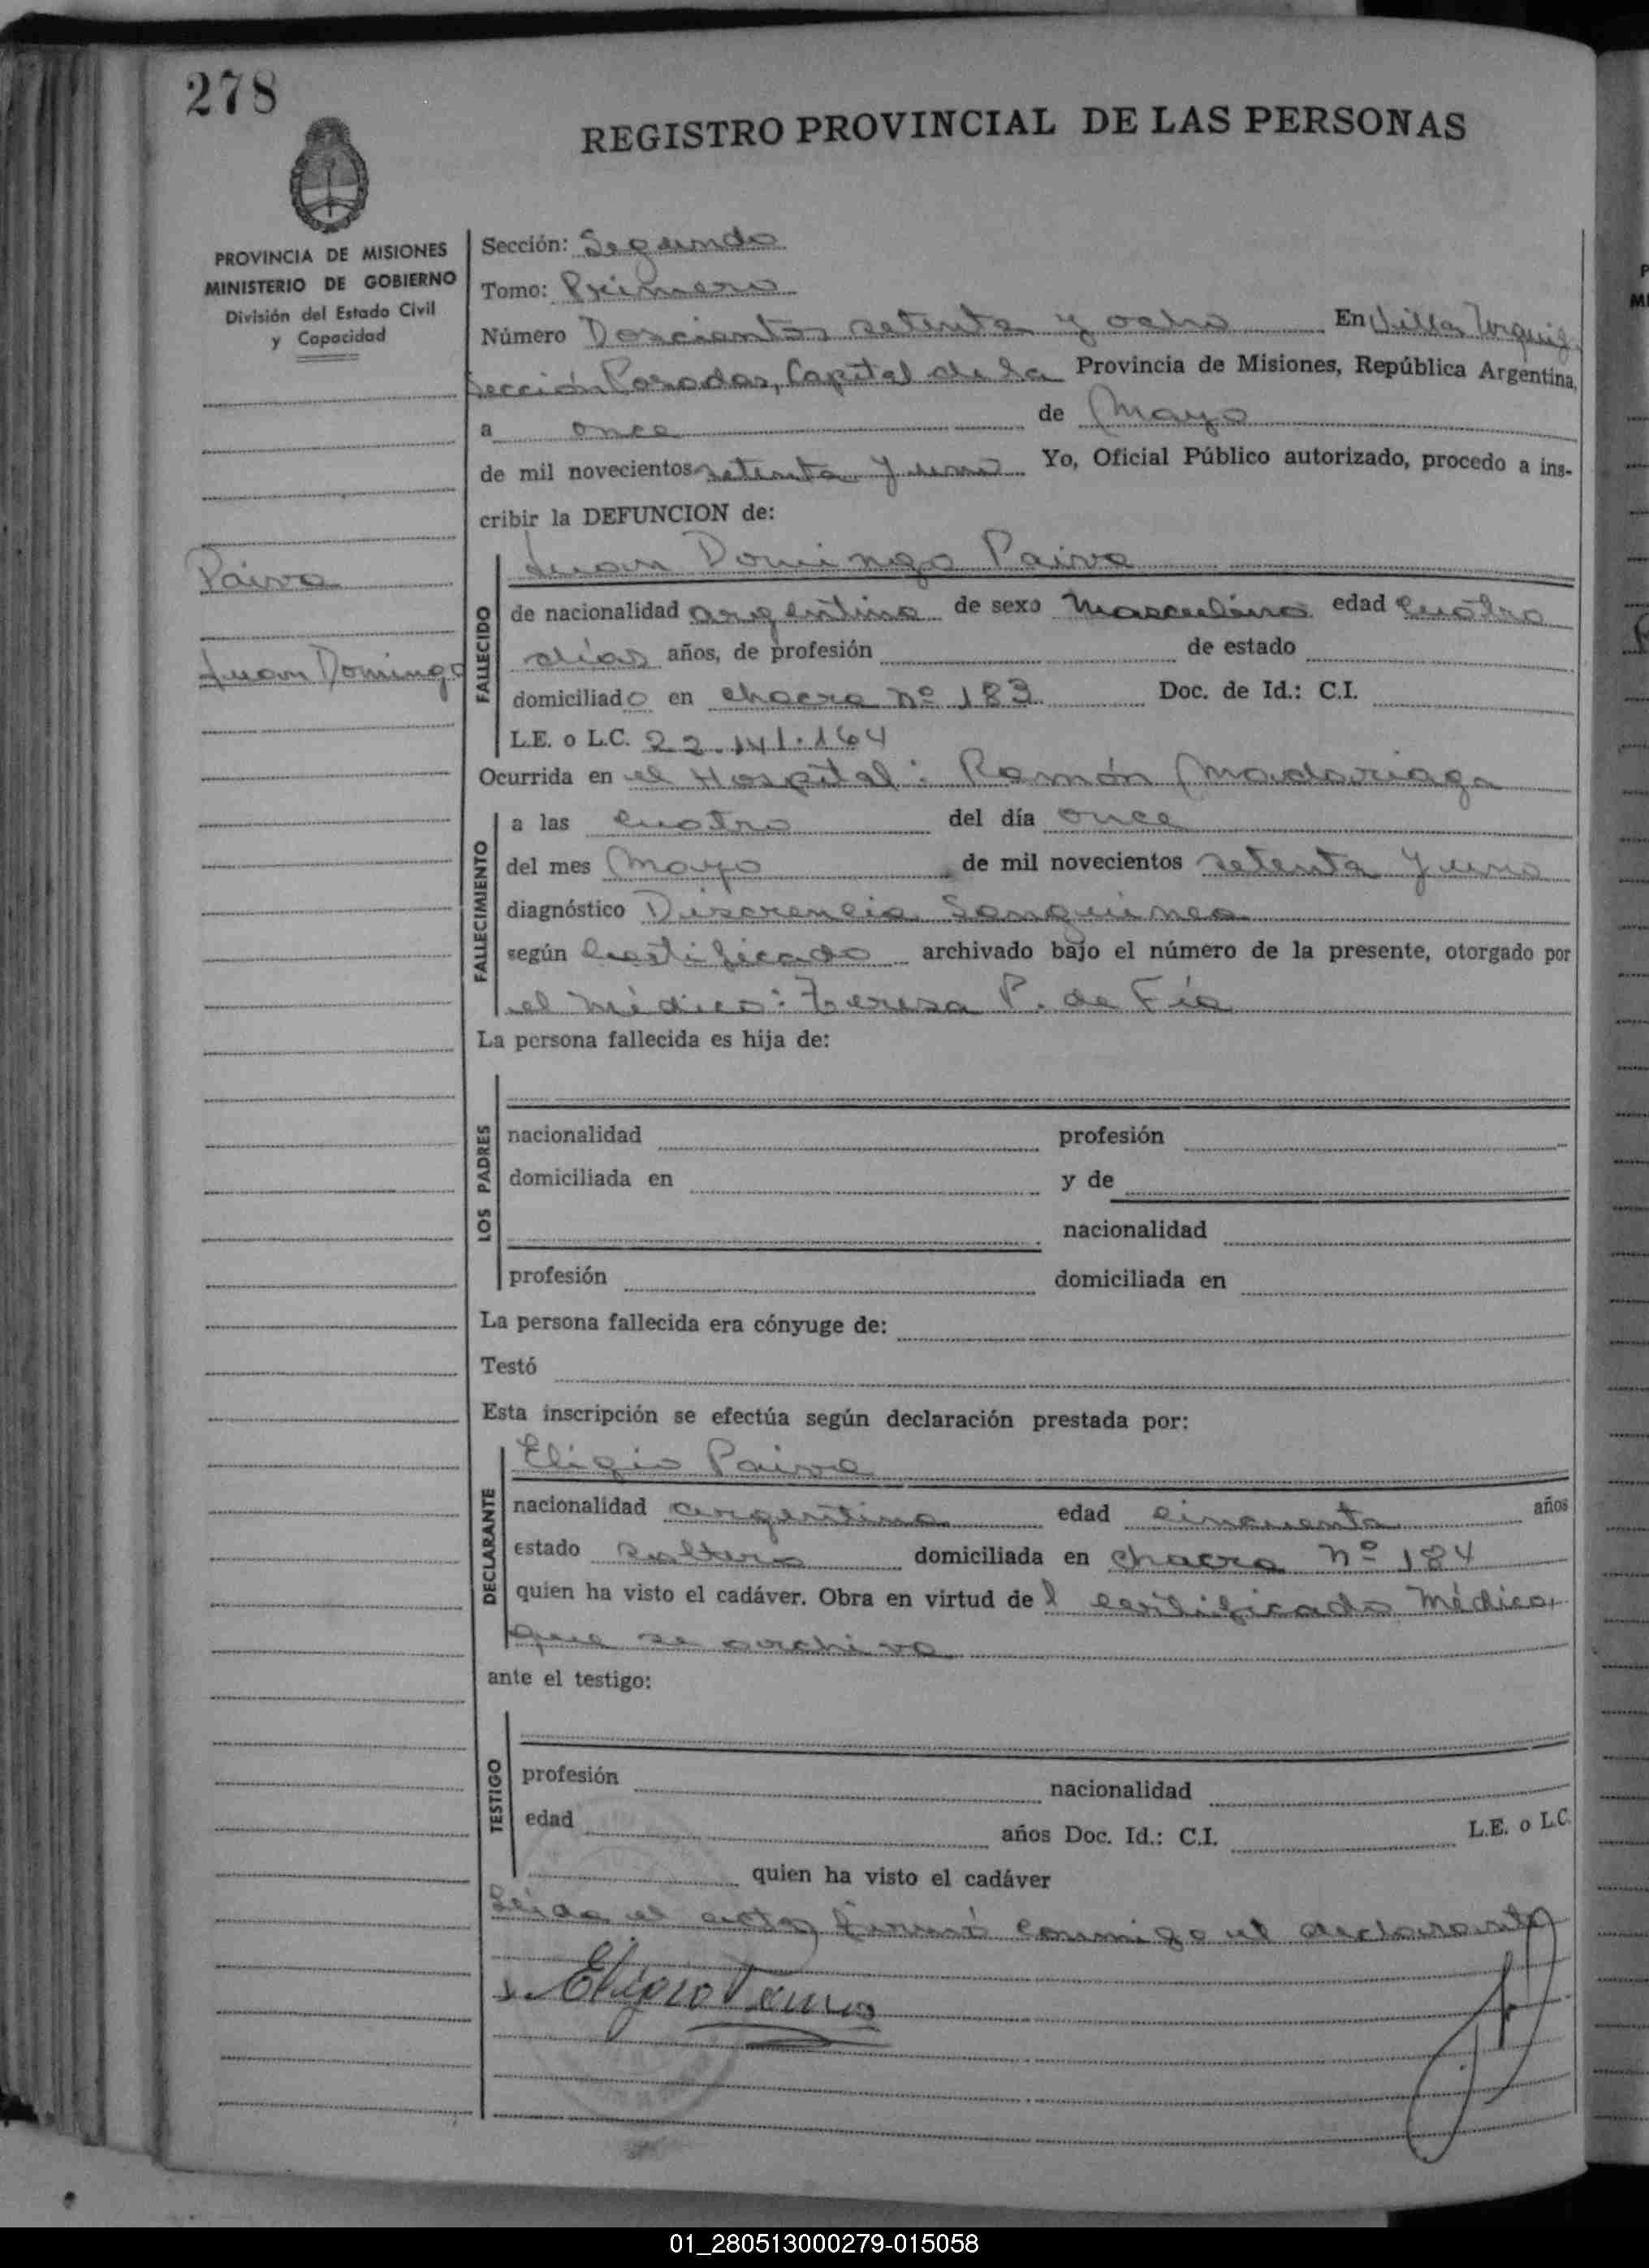 278
REGISTRO PROVINCIAL DE LAS PERSONAS
PROVINCIA DE MISIONES
MINISTERIO DE GOBIERNO
División del Estado Civil
y Capacidad
Paiva
Juan Domingo
Sección: Segundo
Tomo: Primero
Número Doscientos setenta y ocho En Villa Urquiza
Sección Posadas, Capital de la Provincia de Misiones, República Argentina,
a once de Mayo
de mil novecientos setenta y uno Yo, Oficial Público autorizado, procedo a ins-
cribir la DEFUNCION de:
FALLECIDO
Juan Domingo Paiva
de nacionalidad argentina de sexo Masculino edad cuatro
días años, de profesión de estado
domiciliado en chacra nº 183 Doc. de Id.: C.I.
L.E. o L.C. 22.141.164
Ocurrida en el Hospital: Ramón Madariaga
FALLECIMIENTO
a las cuatro del día once
del mes Mayo de mil novecientos setenta y uno
diagnóstico Discrencia Sanguinea
según Certificado archivado bajo el número de la presente, otorgado por
el Médico: Teresa P. de Fía
La persona fallecida es hija de:
LOS PADRES
nacionalidad profesión
domiciliada en y de
nacionalidad
profesión domiciliada en
La persona fallecida era cónyuge de:
Testó
Esta inscripción se efectúa según declaración prestada por:
DECLARANTE
Eligio Paiva
nacionalidad argentina edad cincuenta años
estado soltero domiciliada en chacra nº 184
quien ha visto el cadáver. Obra en virtud de l certificado Médico,
que se archiva
ante el testigo:
TESTIGO
profesión nacionalidad
edad años Doc. Id.: C.I. L.E. o L.C.
quien ha visto el cadáver
Leída el acta, firmó conmigo el declarante
Eligio Paiva
01_280513000279-015058